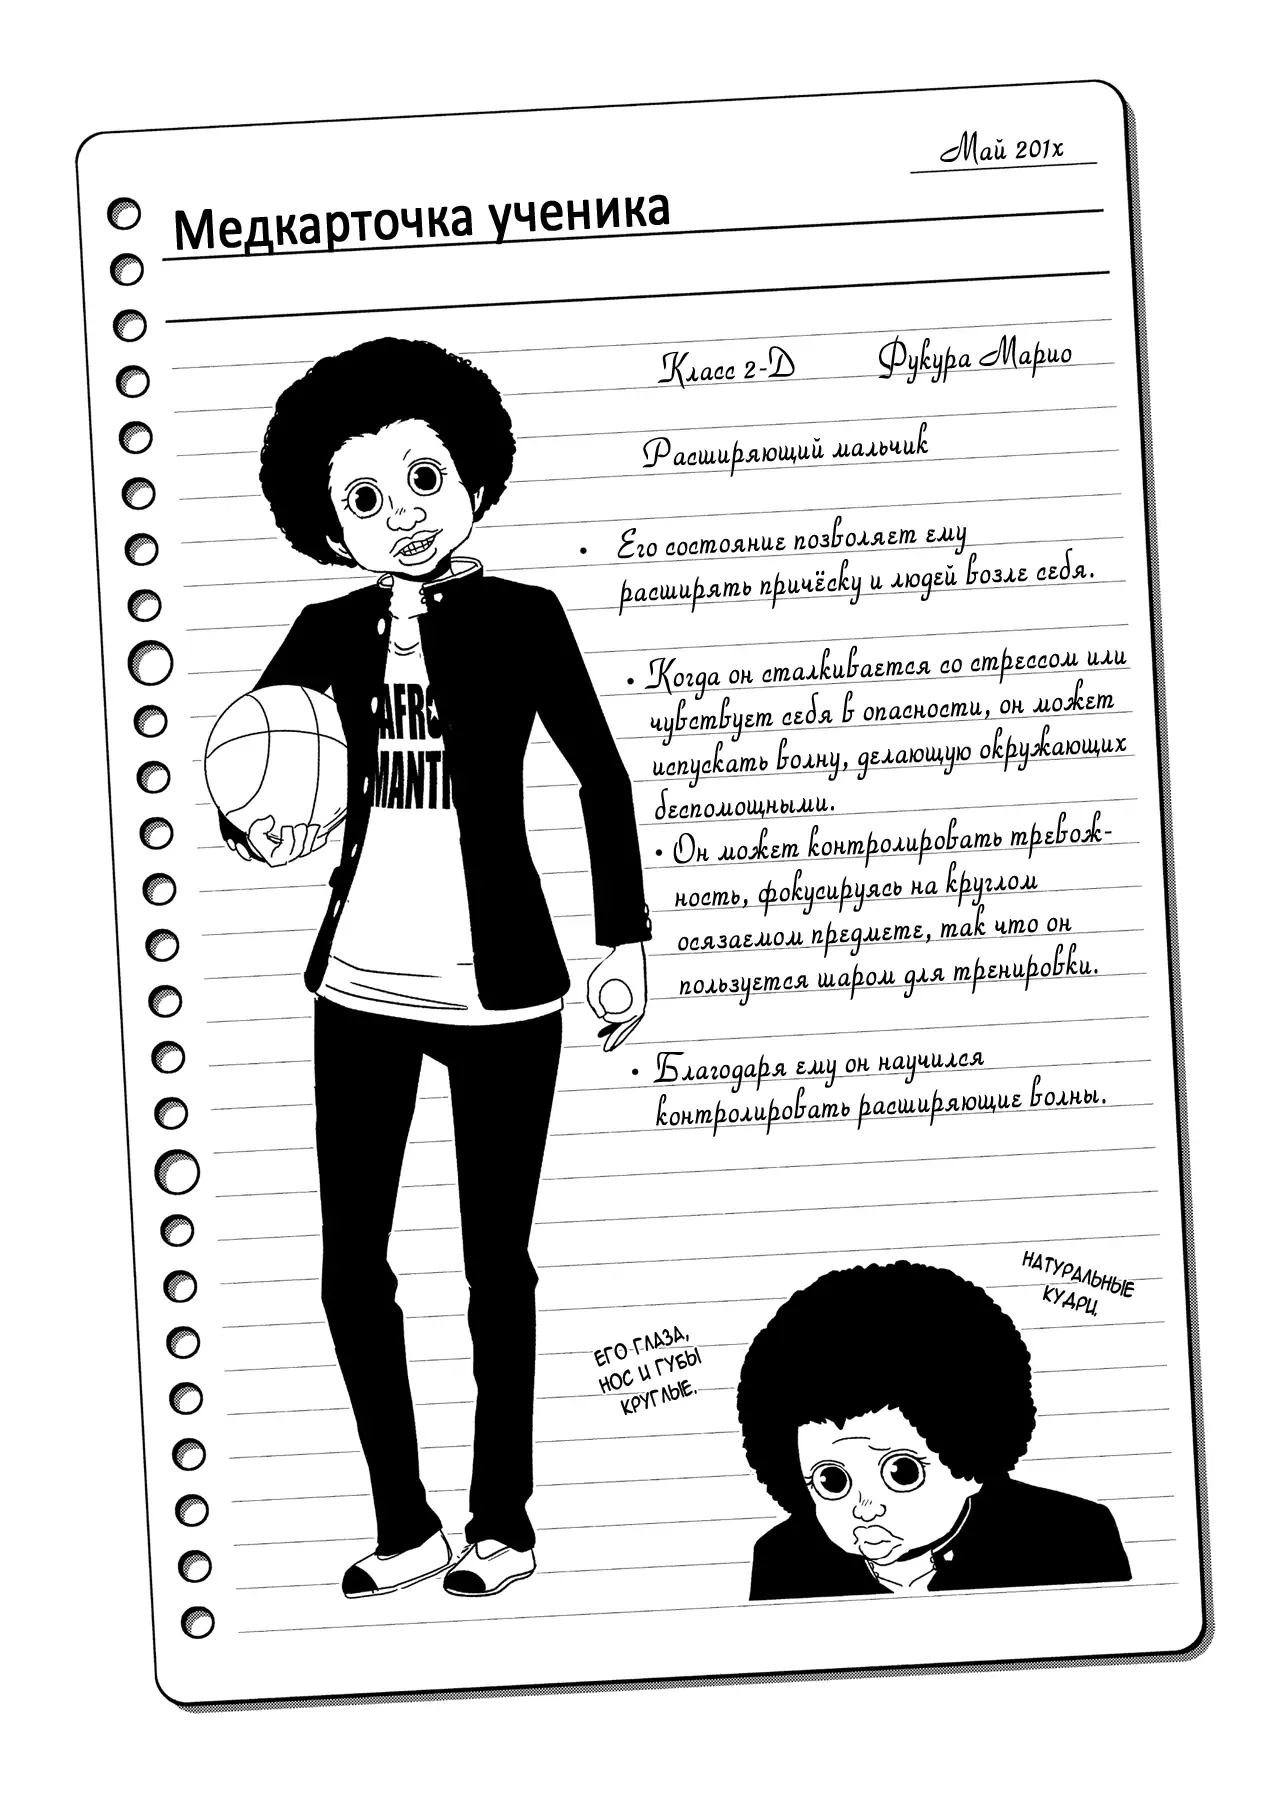 Май 201х
Медкарточка ученика
Класс 2-Д Фукура Марио
Расширяющий мальчик
• Его состояние позволяет ему
расширять причёску и людей возле себя.
• Когда он сталкивается со стрессом или
чувствует себя в опасности, он может
испускать волну, делающую окружающих
беспомощными.
• Он может контролировать тревож-
ность, фокусируясь на круглом
осязаемом предмете, так что он
пользуется шаром для тренировки.
• Благодаря ему он научился
контролировать расширяющие волны.
AFRO
MANTI
НАТУРАЛЬНЫЕ
КУДРИ.
ЕГО ГЛАЗА,
НОС И ГУБЫ
КРУГЛЫЕ.